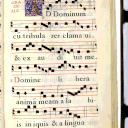 D Dominum
cu tribula rer clama ui
& ex au di uit me
Domine li bera
animã meam a la bi
is iniquis & a lingua